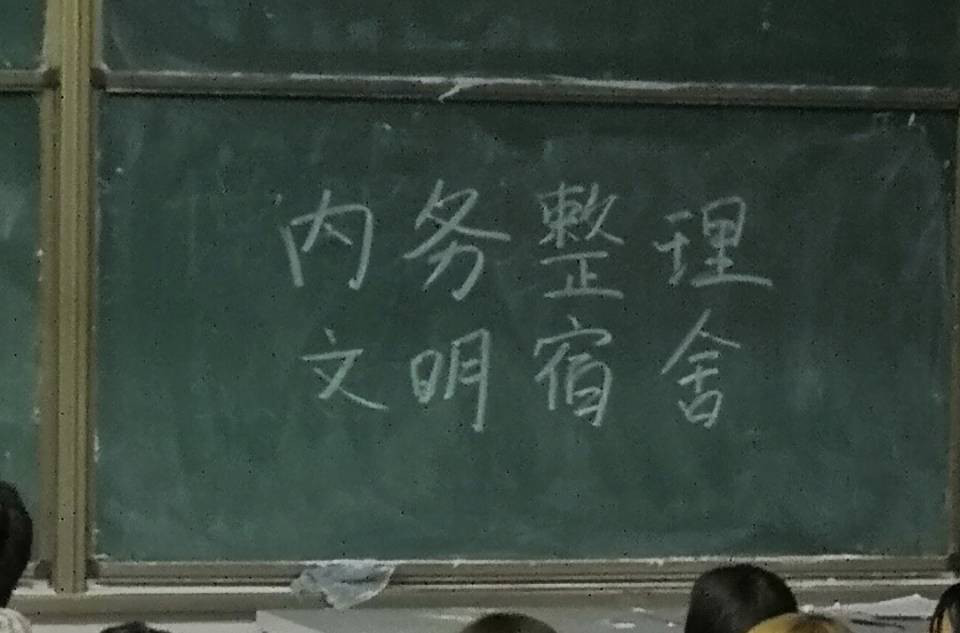 内务整理
文明宿舍